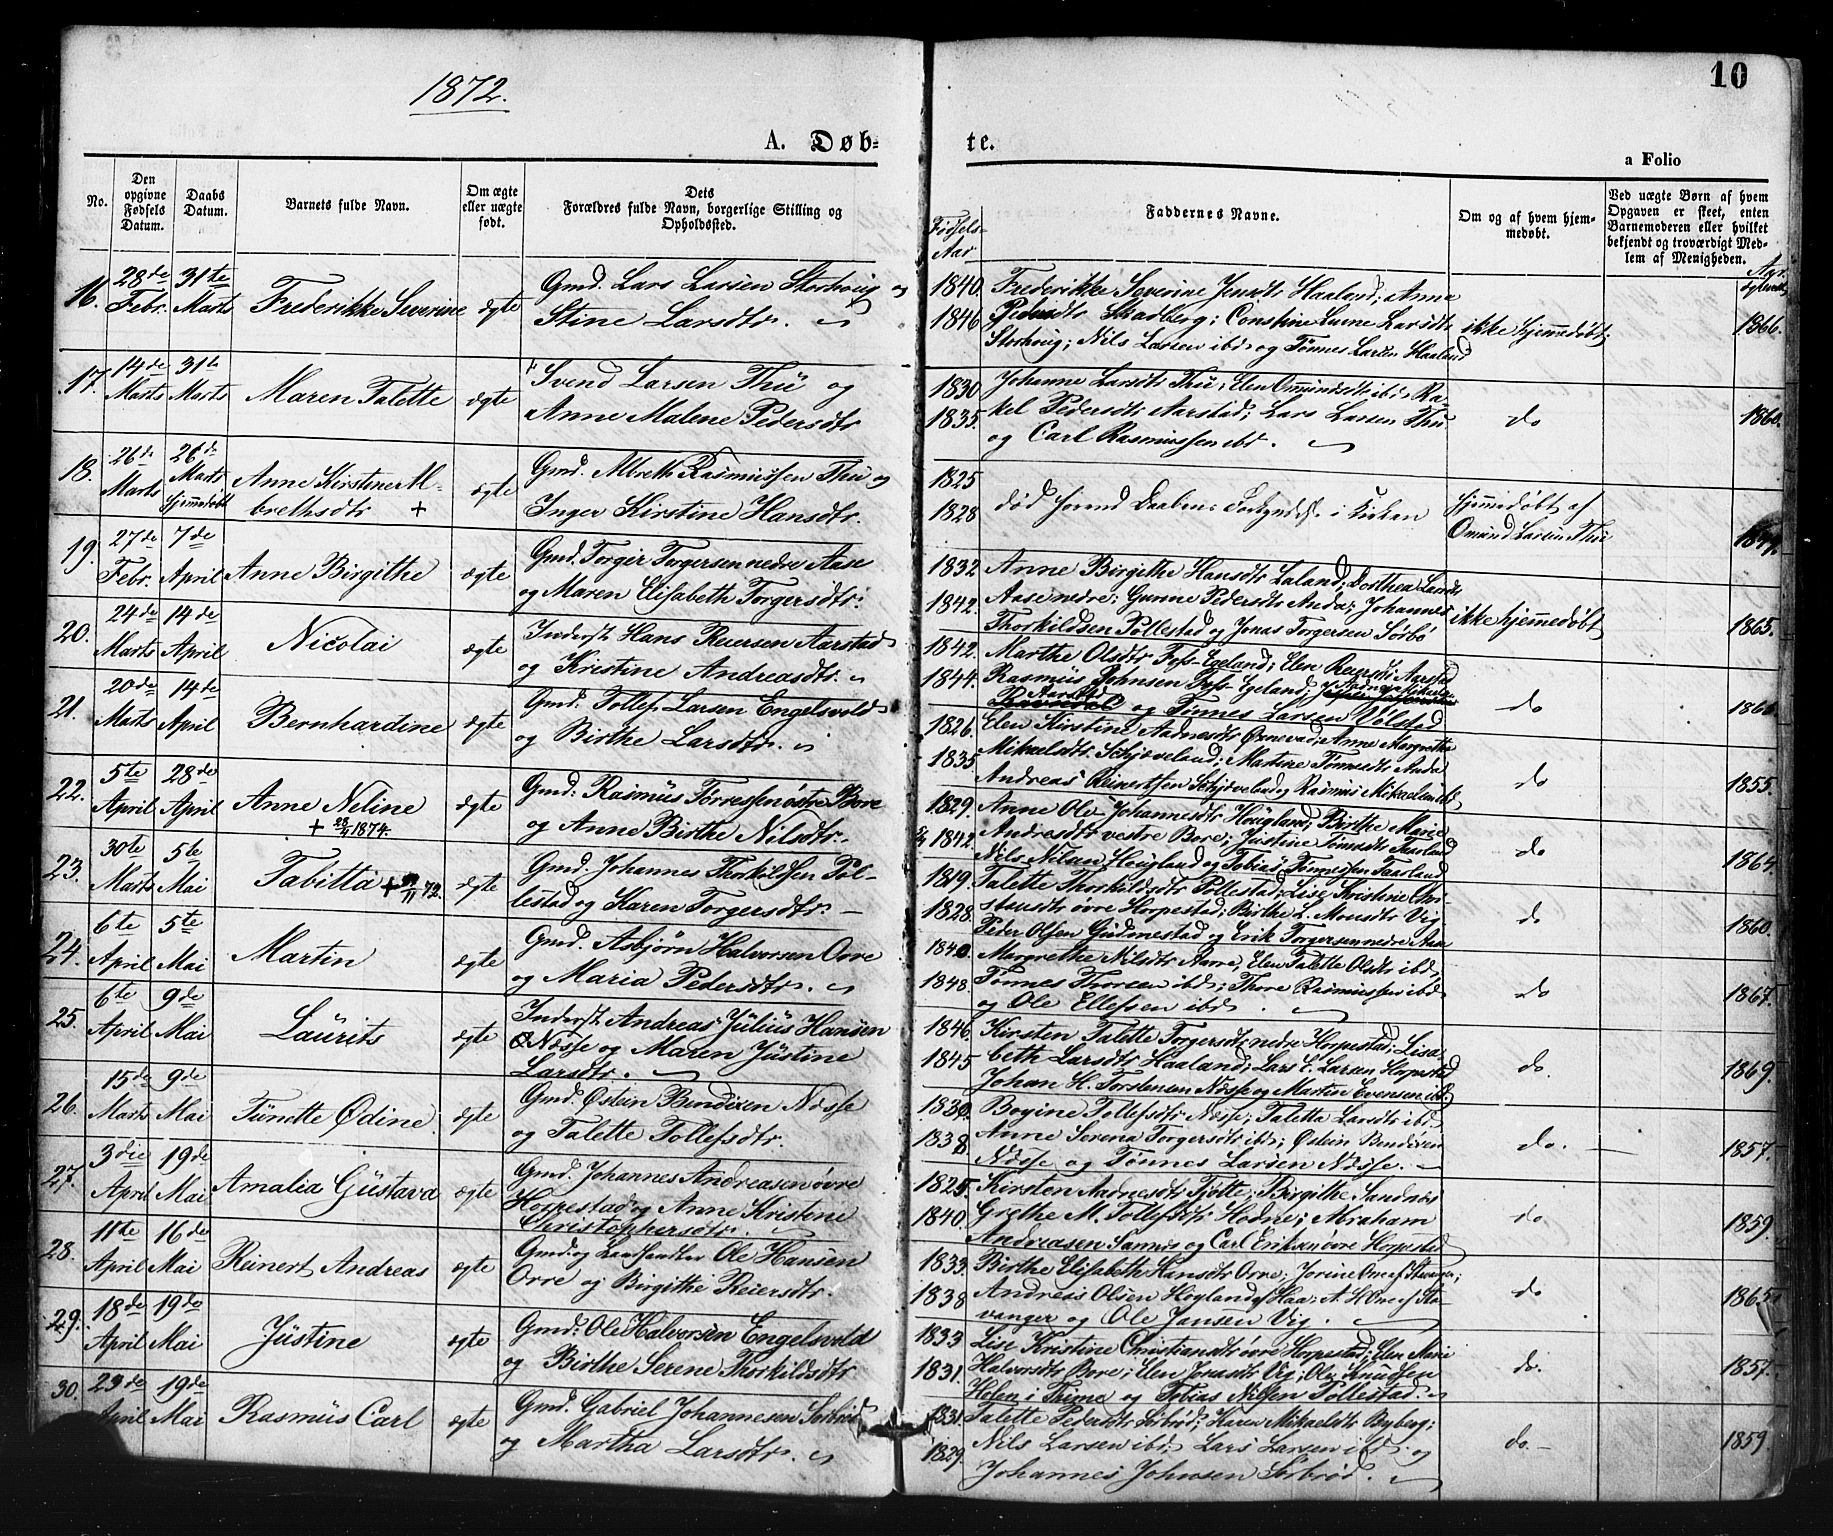 1872.
10
A. Døb-
te.
a Folio
No.
Den opgivne Fødsels Datum.
Daabs Datum.
Barnets fulde Navn.
Om ægte eller uægte født.
Dets Forældres fulde Navn, borgerlige Stilling og Opholdssted.
Fødsels-Aar
Faddernes Navne.
Om og af hvem hjemmedøbt.
Ved uægte Børn af hvem Opgaven er skeet, enten Barnemoderen eller hvilket bekjendt og troværdigt Medlem af Menigheden.
16. 28de Febr. 31te Marts Frederikke Severine ægte Gmd. Lars Larsen Storhoug og
Stine Larsdtr.
1840. Frederikke Severine Jensdtr Haaland; Anna
1846 Pedersdtr Skadberg; Larsdtr ikke hjemmedøbt; 1866.
Storhoug; Nils Larsen ibd og Tønnes Larsen Haaland
17. 14de Marts 31te Marts Maren Talette ægte Svend Larsen Thu og
Anne Malene Pedersdtr
1830 Johanne Larsdtr Thu; Elen Omundsdtr ibd; Ra-
1835. kel Pedersdtr Aarstad; Lars Larsen Thu do 1860.
og Carl Rasmussen ibd.
18. 26de Marts 26de Marts hjemmedøbt Anne Kirstine Al-
brethsdtr + ægte Gmd. Albreth Rasmussen Thu og
Inger Kirstine Hansdtr.
1825
1828 død Daabens i Kirken hjemmedøbt af
Omund Larsen Thu
19. 27de Febr. 7de April Anne Birgithe ægte Gmd. Torger Torgersen nedre Aase
og Maren Elisabeth Torgersdtr.
1832 Anne Birgithe Hansdtr Laland; Dorthea Larsdtr
1842. Aase nedre; Gunne Pedersdtr Anda; Johannes ikke hjemmedøbt 1865.
Thorkildsen Pollestad og Jonas Torgersen Sørbø
20. 24de Marts 14de April Nicolai ægte Inderst Hans Reiersen Aarstad
og Kristine Andreasdtr.
1842. Marthe Olsdtr Foss-Egeland; Elen Reiersdtr Aarstad
1844. Rasmus Johnsen Foss-Egeland;
Aarstad og Tønnes Larsen Vølstad do
21. 20de Marts 14de April Bernhardine ægte Gmd. Tollef Larsen Engelsvold
og Birthe Larsdtr.
1826. Elen Kirstine Aadnesdtr Ørnevad; Anne Margrethe
1835 Mikaelsdtr Schjæveland; Martine Tønnesdtr Anda do 1855.
Andreas Reinertsen Schjæveland og Rasmus Mikaelsen ibd
22. 5te April 28de April Anne Neline + 28/4 1874. ægte Gmd. Rasmus Torressen østre Bore
og Anne Birthe Nilsdtr.
1829. Anne Ole Johannesdtr Hougland; Birthe Marie
1842. Andrasdtr vestre Bore; Justine Tønnesdtr Taarland do 1864.
Nils Nilsen Hougland og Tobias Tønnessen Taarland
23. 30te Marts 5te Mai Tabitta + 11 72. ægte Gmd. Johannes Thorkildsen Pol-
lestad og Karen Torgersdtr.
1819. Talette Thorkildsdtr Pollestad; Lise Kristine Chri-
1828. stansdtr øvre Horpestad; Birthe L. Monsdtr Vig do 1860.
Peder Olsen Gudmestad og Erik Torgersen nedre Aase
24. 6te April 5te Mai Martin ægte Gmd. Asbjørn Halvorsen Orre
og Maria Pedersdtr.
1840. Margrethe Nilsdtr Aarre; Elen Talette Olsdtr ibd,
1848. Tønnes Thorsen ibd; Thore Rasmussen ibd do 1867.
og Ole Ellefsen ibd.
25. 6te April 9de Mai Laurits ægte Inderst Andreas Julius Hansen
Næsse og Maren Justine
Larsdtr.
1846. Kirsten Talette Torgersdtr nedre Horpestad; Lisa-
1845 beth Larsdtr Haaland; Lars E. Larsen Horpestad do. 1869.
Johan H. Torstensen Næsse og Martin Evensen ibd
26. 15de Marts 9de Mai Tünette Ødine. ægte Gmd. Østein Bendixen Næsse
og Talette Tollefsdtr.
1830. Bogine Tollefsdtr Næsse; Taletta Larsdtr ibd.
1838. Anne Serena Torgersdtr ibd; Østein Bendixen do. 1857.
Næsse og Tønnes Larsen Næsse.
27. 3die April 19de Mai Amalia Gustava ægte Gmd. Johannes Andreasen øvre
Horpestad og Anne Kristine
Christophersdtr.
1825. Kirsten Aadnesdtr Tjøtte; Birgithe Sandnæs
1840. Grethe M. Tollefsdtr Hodne; Abraham do 1859.
Andreasen Sannes og Carl Eriksen øvre Horpestad
28. 11te April 16de Mai Reinert Andreas ægte Gmd. og Landhandler Ole Hansen
Orre og Birgithe Reiersdtr.
1833. Birthe Elisabeth Hansdtr Orre; Jorine Orre af Stavanger;
1838 Andreas Olsen Høyland af Haa; A. H. Orre af Sta- do 1865.
vanger og Ole Jansen Vig.
29. 18de April 19de Mai Justine ægte Gmd: Ole Halvorsen Engelsvold
og Birthe Serene Thorkildsdtr
1833 Lise Kristine Christiansdtr øvre Horpestad; Elen Marie
1831. Halvorsdtr Bore; Elen Jonasdtr Vig; Ole Knudsen do. 1857.
Helen i Trime og Tobias Nilsen Pollestad.
30. 23de April 19de Mai Rasmus Carl ægte Gmd. Gabriel Johannesen Sørbrød
og Martha Larsdtr.
1831. Talette Pedersdtr Sørbrød; Karen Mikaelsdtr Byberg;
1829. Nils Larsen ibd; Lars Larsen ibd og do. 1859.
Johannes Johnsen Sørbrød.